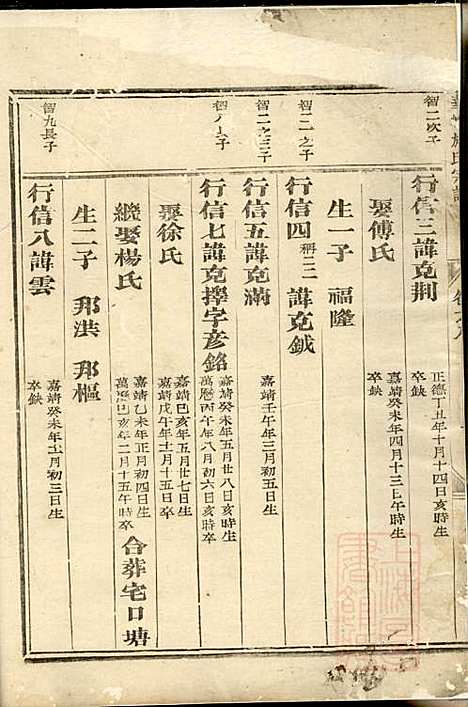 智二次子
行信三諱克荆
正德丁丑年十月十四日亥時生
卒缺
娶傅氏
嘉靖癸未年四月十三日午時生
卒缺
生一子 福隆
智二之子
行信四 稱三 諱克鉞
智二之三子
行信五諱克滿
嘉靖壬午年三月生
卒缺
行信七諱克擇字彥銘
嘉靖癸未年五月廿八日亥時生
萬曆丙午年八月初六日亥時卒
娶徐氏
嘉靖巳亥年五月廿七日生
嘉靖戊午年十一月十五日卒
繼娶楊氏
嘉靖乙未年正月初四日生
萬曆巳亥年二月十五午時卒
合葬宅口塘
生二子 邦洪 邦樞
智九長子
行信八諱雲
嘉靖癸未年十一月初三日生
卒缺